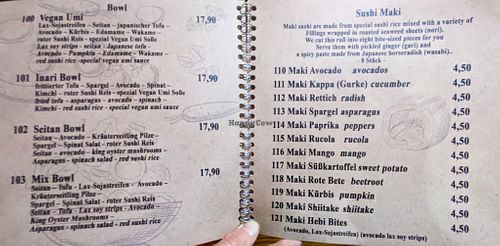 Bowl
100 Vegan Umi 17,90
Lax-Sojastreifen - Seitan - japanischer Tofu
Avocado - Kürbis - Edamame - Wakame -
roter Sushi Reis - spezial Vegan Umi Soße
Lax soy strips - seitan - Japanese tofu -
Avocado - Pumpkin - Edamame - Wakame -
red sushi rice - special vegan umi sauce
101 Inari Bowl 17,90
frittierter Tofu - Spargel - Avocado - Spinat -
Kimchi - roter Sushi Reis - spezial Vegan Umi Soße
fried tofu - asparagus - avocado - spinach -
Kimchi - red sushi rice - special vegan umi sauce
102 Seitan Bowl 17,90
Seitan - Avocado - Kräuterseitling Pilze -
Spargel - Spinat Salat - roter Sushi Reis
Seitan - avocado - king oyster mushrooms -
Asparagus - spinach salad - red sushi rice
103 Mix Bowl 17,90
Seitan - Tofu - Lax-Sojastreifen - Avocado -
Kräuterseitling Pilze -
Spargel - Spinat Salat - roter Sushi Reis
Seitan - Tofu - Lax soy strips - Avocado -
King Oyster Mushrooms -
Asparagus - spinach salad - red sushi rice
Sushi Maki
Maki sushi are made from special sushi rice mixed with a variety of
Fillings wrapped in roasted seaweed sheets (nori).
We cut this roll into eight bite-sized pieces for you
Serve them with pickled ginger (gari) and
a spicy paste made from Japanese horseradish (wasabi).
- 8 Stück -
110 Maki Avocado avocados 4,50
111 Maki Kappa (Gurke) cucumber 4,50
112 Maki Rettich radish 4,50
113 Maki Spargel asparagus 4,50
114 Maki Paprika peppers 4,50
115 Maki Rucola rucola 4,50
116 Maki Mango mango 4,50
117 Maki Süßkartoffel sweet potato 4,50
118 Maki Rote Bete beetroot 4,50
119 Maki Kürbis pumpkin 4,50
120 Maki Shiitake shiitake 4,50
121 Maki Hebi Bites 4,50
(Avocado, Lax-Sojastreifen) (avocado lax soy strips)